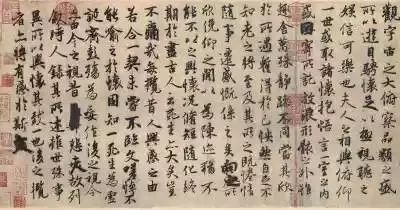 觀宇宙之大俯察品類之盛
所以遊目騁懷足以極視聽之
娛信可樂也夫人之相與俯仰
一世或取諸懷抱悟言一室之內
或因寄所託放浪形骸之外雖
趣舍萬殊靜躁不同當其欣
於所遇暫得於己怏然自足不
知老之將至及其所之既惓情
隨事遷感慨係之矣向之所
欣俛仰之閒以為陳迹猶不
能不以之興懷況脩短隨化終
期於盡古人云死生亦大矣豈
不痛哉每攬昔人興感之由
若合一契未嘗不臨文嗟悼不
能喻之於懷固知一死生為虛
誕齊彭殤為妄作後之視今
亦由今之視昔悲夫故列
敘時人錄其所述雖世殊事
異所以興懷其致一也後之攬
者亦將有感於斯文